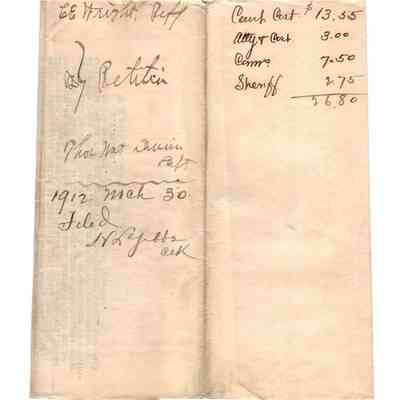 EE Wright, Peff
Petition
Thos
Deft
1912 Mch 30
Filed
Clk
Court Cost $ 13.55
Atty & Cost 3.00
Comr 7.50
Sheriff 2.75
26.80